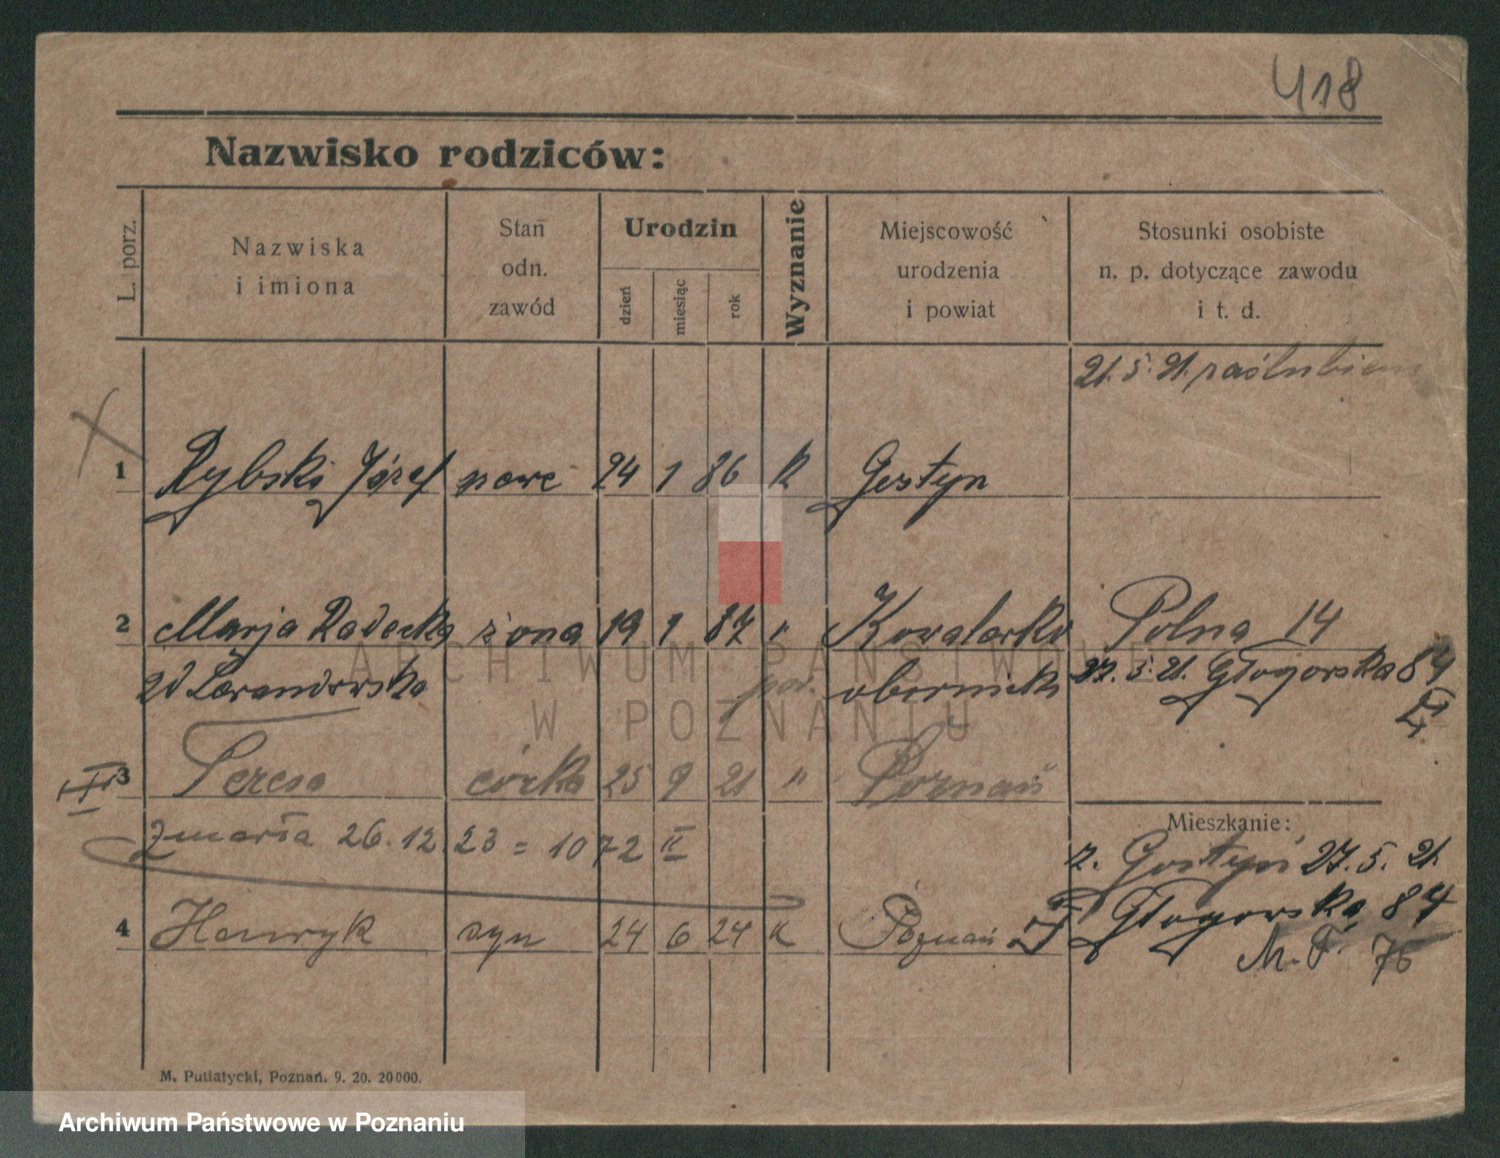 418
Nazwisko rodziców:
L. porz.
Nazwiska
i imiona
Stan
odn.
zawód
Urodzin
dzień
miesiąc
rok
Wyznanie
Miejscowość
urodzenia
i powiat
Stosunki osobiste
n. p. dotyczące zawodu
i t. d.
21. 5. 21.
1 Rybski Józef 24 1 86 k Gostyn
2 Marja Radecka żona 19 1 87 " Kowalarko Polna 14
pow. obornicki 27. 5. 21. Głogorska 84
3 Teresa córka 25 9 21 " Poznań
Mieszkanie:
zmarła 26. 12. 23 = 1072 II
z. Gostyń 27. 5. 21.
4 Henryk syn 24 6 24 k Poznań Głogorska 84
M. F. 76
M. Putiatycki, Poznań. 9. 20. 20000.
ARCHIWUM PAŃSTWOWE
W POZNANIU
Archiwum Państwowe w Poznaniu